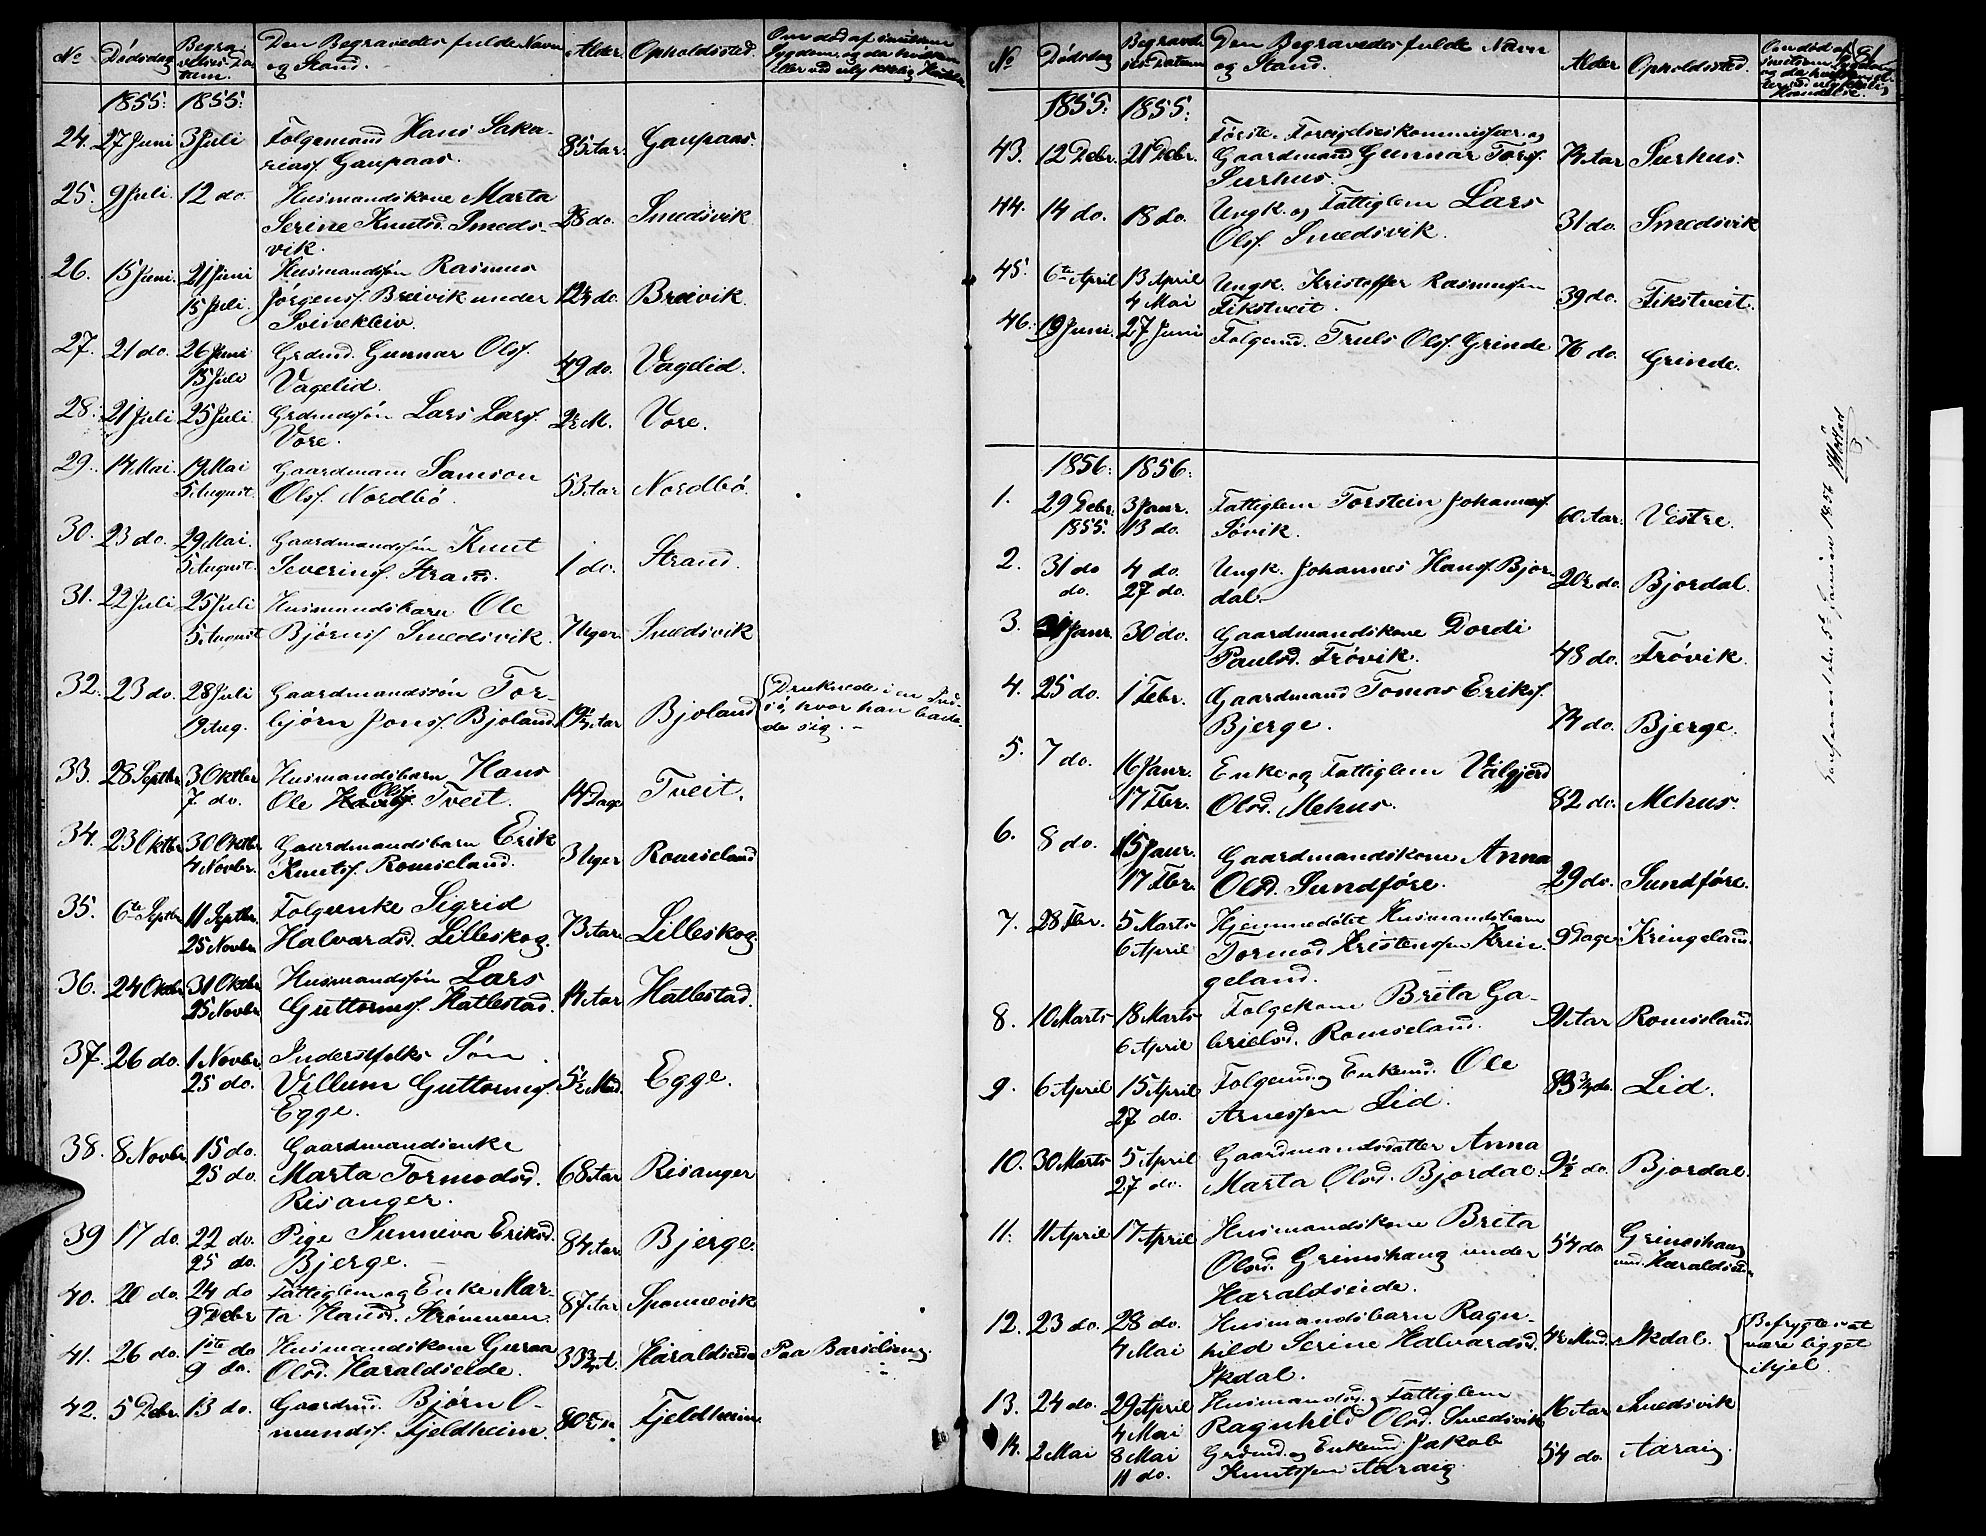 No Dødsdag Begravelses-Datum. Den Begravedes fulde Navn og Stand. Alder. Opholdssted. Om død af smitsom Sygdom, og da hvilken
1855. 1855.
24. 27 Juni 3 Juli Folgemand Hans Saka- 85 Aar. Gaupaas.
riass. Gaupaas.
25. 9 Juli. 12 do. Husmandskone Marta
Serine Knutsd. Smeds- 28 do. Smedsvik
vik.
26. 15 Juni. 21 Juni Husmandssøn Rasmus
15 Juli. Jørgens. Breivik under do. Breivik.
27. 21 do. 26 Juni Grdmd. Gunnar Ols. 49 do. Vagelid.
15 Juli Vagelid.
28. 21 Juli 25 Juli Grdmdssøn Lars Lars. Vore.
Vore.
29. 14 Mai. 19 Mai Gaardmann Samson 53 Aar Nordbø.
5 August. Ols. Nordbø.
30. 23 do. 29 Mai. Gaardmandssøn Knut 1 do. Strand.
5 August. Severins. Strand.
31. 22 Juli 25 Juli Husmandsbarn Ole
5 August Bjørns. Smedsvik. 7 Uger Smedsvik
32. 23 do. 28 Juli Gaardmandssøn Tor- Druknede i en
19 Aug. bjørn Jons. Bjoland Aar Bjoland hvor han bade-
de sig. -
33. 28 Septbr. 3 Oktbr Husmandsbarn Hans
7 do. Ole Ols. Tveit. 14 Dage Tveit.
34. 23 Oktbr. 30 Oktbr. Gaardmandsbarn Erik
4 Novbr. Knuts. Romseland. 3 Uger Romseland
35. 6te Septbr. 11 Septbr. Folgeenke Sigrid
25 Novbr. Halvardsd. Lilleskog. 73 Aar. Lilleskog.
36. 24 Oktbr. 31 Oktbr. Husmandssøn Lars
25 Novbr. Guttorms. Hatlestad. 14 Aar Hatlestad.
37. 26 do. 1 Novbr. Inderstfolks Søn
25 do. Villum Guttorms. 5½ Mnd. Egge.
Egge.
38. 8 Novbr. 15 do. Gaardmandsenke
25 do. Marta Tormodsd. 68 Aar Risanger
Risanger.
39 17 do. 22 do. Pige Sunneva Eriksd. 84 Aar Bjerge.
25 do. Bjerge.
40. 20 do. 24 do Fattiglem og Enke Mar-
9 Debr ta Hansd. Strømmen. 87 Aar Sponnevik
41. 26 do. 1ste do Husmandskone Guroa Haraldseide Paa Barselseng.
9 do. Olsd. Haraldseide.
42. 5 Debr. 13 do. Gaardmd. Bjørn O-
munds. Fjeldheim. Fjeldheim.
No Dødsdag Begravelses-Datum Den Begravedes fulde Navn og Stand. Alder Opholdssted.
1855. 1855.
Første Forligelseskommissær og
43. 12 Debr. 21 Debr. Gaardmand Gunnar Tors. 74 Aar Surhus.
Surhus.
44. 14 do. 18 do. Ungk. og Fattiglem Lars 31 do. Smedsvik
Ols. Smedsvik.
45. 6te April 13 April Ungk. Kristoffer Rasmussen 39 do. Fikstveit.
4 Mai Fikstveit.
46. 19 Juni. 27 Juni Folgemd. Truls Ols. Grinde 76 do. Grinde.
1856. 1856.
1. 29 Debr. 3 Janr. Fattiglem Torstein Johannes. 60 Aar. Vestre.
1855. 13 do. Søvik.
2. 31 do 4 do. Ungk. Johannes Hans. Bjor- 20½ do. Bjordal.
do. 27 do. dal.
3. Janr. 30 do. Gaardmandskone Dordi
Paulsd. Frøvik. 48 do. Frøvik.
4. 25 do. 1 Febr. Gaardmand Tomas Eriks.
Bjerge. 74 do. Bjerge.
5. 7 do. 16 Janr. Enke og Fattiglem Valgjerd
17 Fbr. Olsd. Mehus. 82 do. Mehus.
6. 8 do. 15 Janr. Gaardmandskone Anna
17 Fbr. Olsd. Sundføre. 29 do. Sundføre.
7. 28 Fbr. 5 Marts Hjemmedøbt Husmandsbarn
6 April Tormod Kristenssen Krin- 9 Dage Kringeland.
geland.
8. 10 Marts 18 Marts Folgekone Brita Ga- 91 Aar Romseland.
6 April brielsd. Romseland.
9. 6 April 15 April Folgemd. og Enkemd. Ole 83¾ do. Lid.
27 do. Arnessen Lid.
10. 30 Marts 5 April Gaardmandsdatter Anna
27 do. Marta Olsd. Bjordal. 9½ do. Bjordal.
11. 11 April 17 April Husmandskone Brita
Olsd. Grimshaug under 54 do. Grimshaug und. Haraldseide
Haraldseide.
12. 23 do. 28 do. Husmandsbarn Ragn- Befrygtes at
4 Mai hild Serine Halvardsd. Mnd. Økdal. være ligget
Økdal. ihjel.
13. 24 do. 29 April Husmandsd. og Fattiglem 16 Aar Smedsvik
4 Mai Ragnhild Olsd. Smedsvik
14. 2 Mai 8 Mai Grdmd. og Enkemd. Jakob 54 do. Aaraig.
11 do. Knutssen Aaraig.